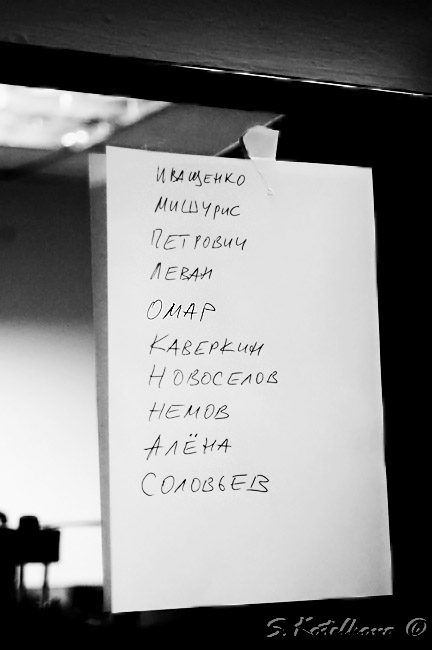 ИВАЩЕНКО
МИШУРИС
ПЕТРОВИЧ
ЛЕВАН
ОМАР
КАВЕРКИН
НОВОСЕЛОВ
НЕМОВ
АЛЁНА
СОЛОВЬЕВ
S. Kotelkova ©